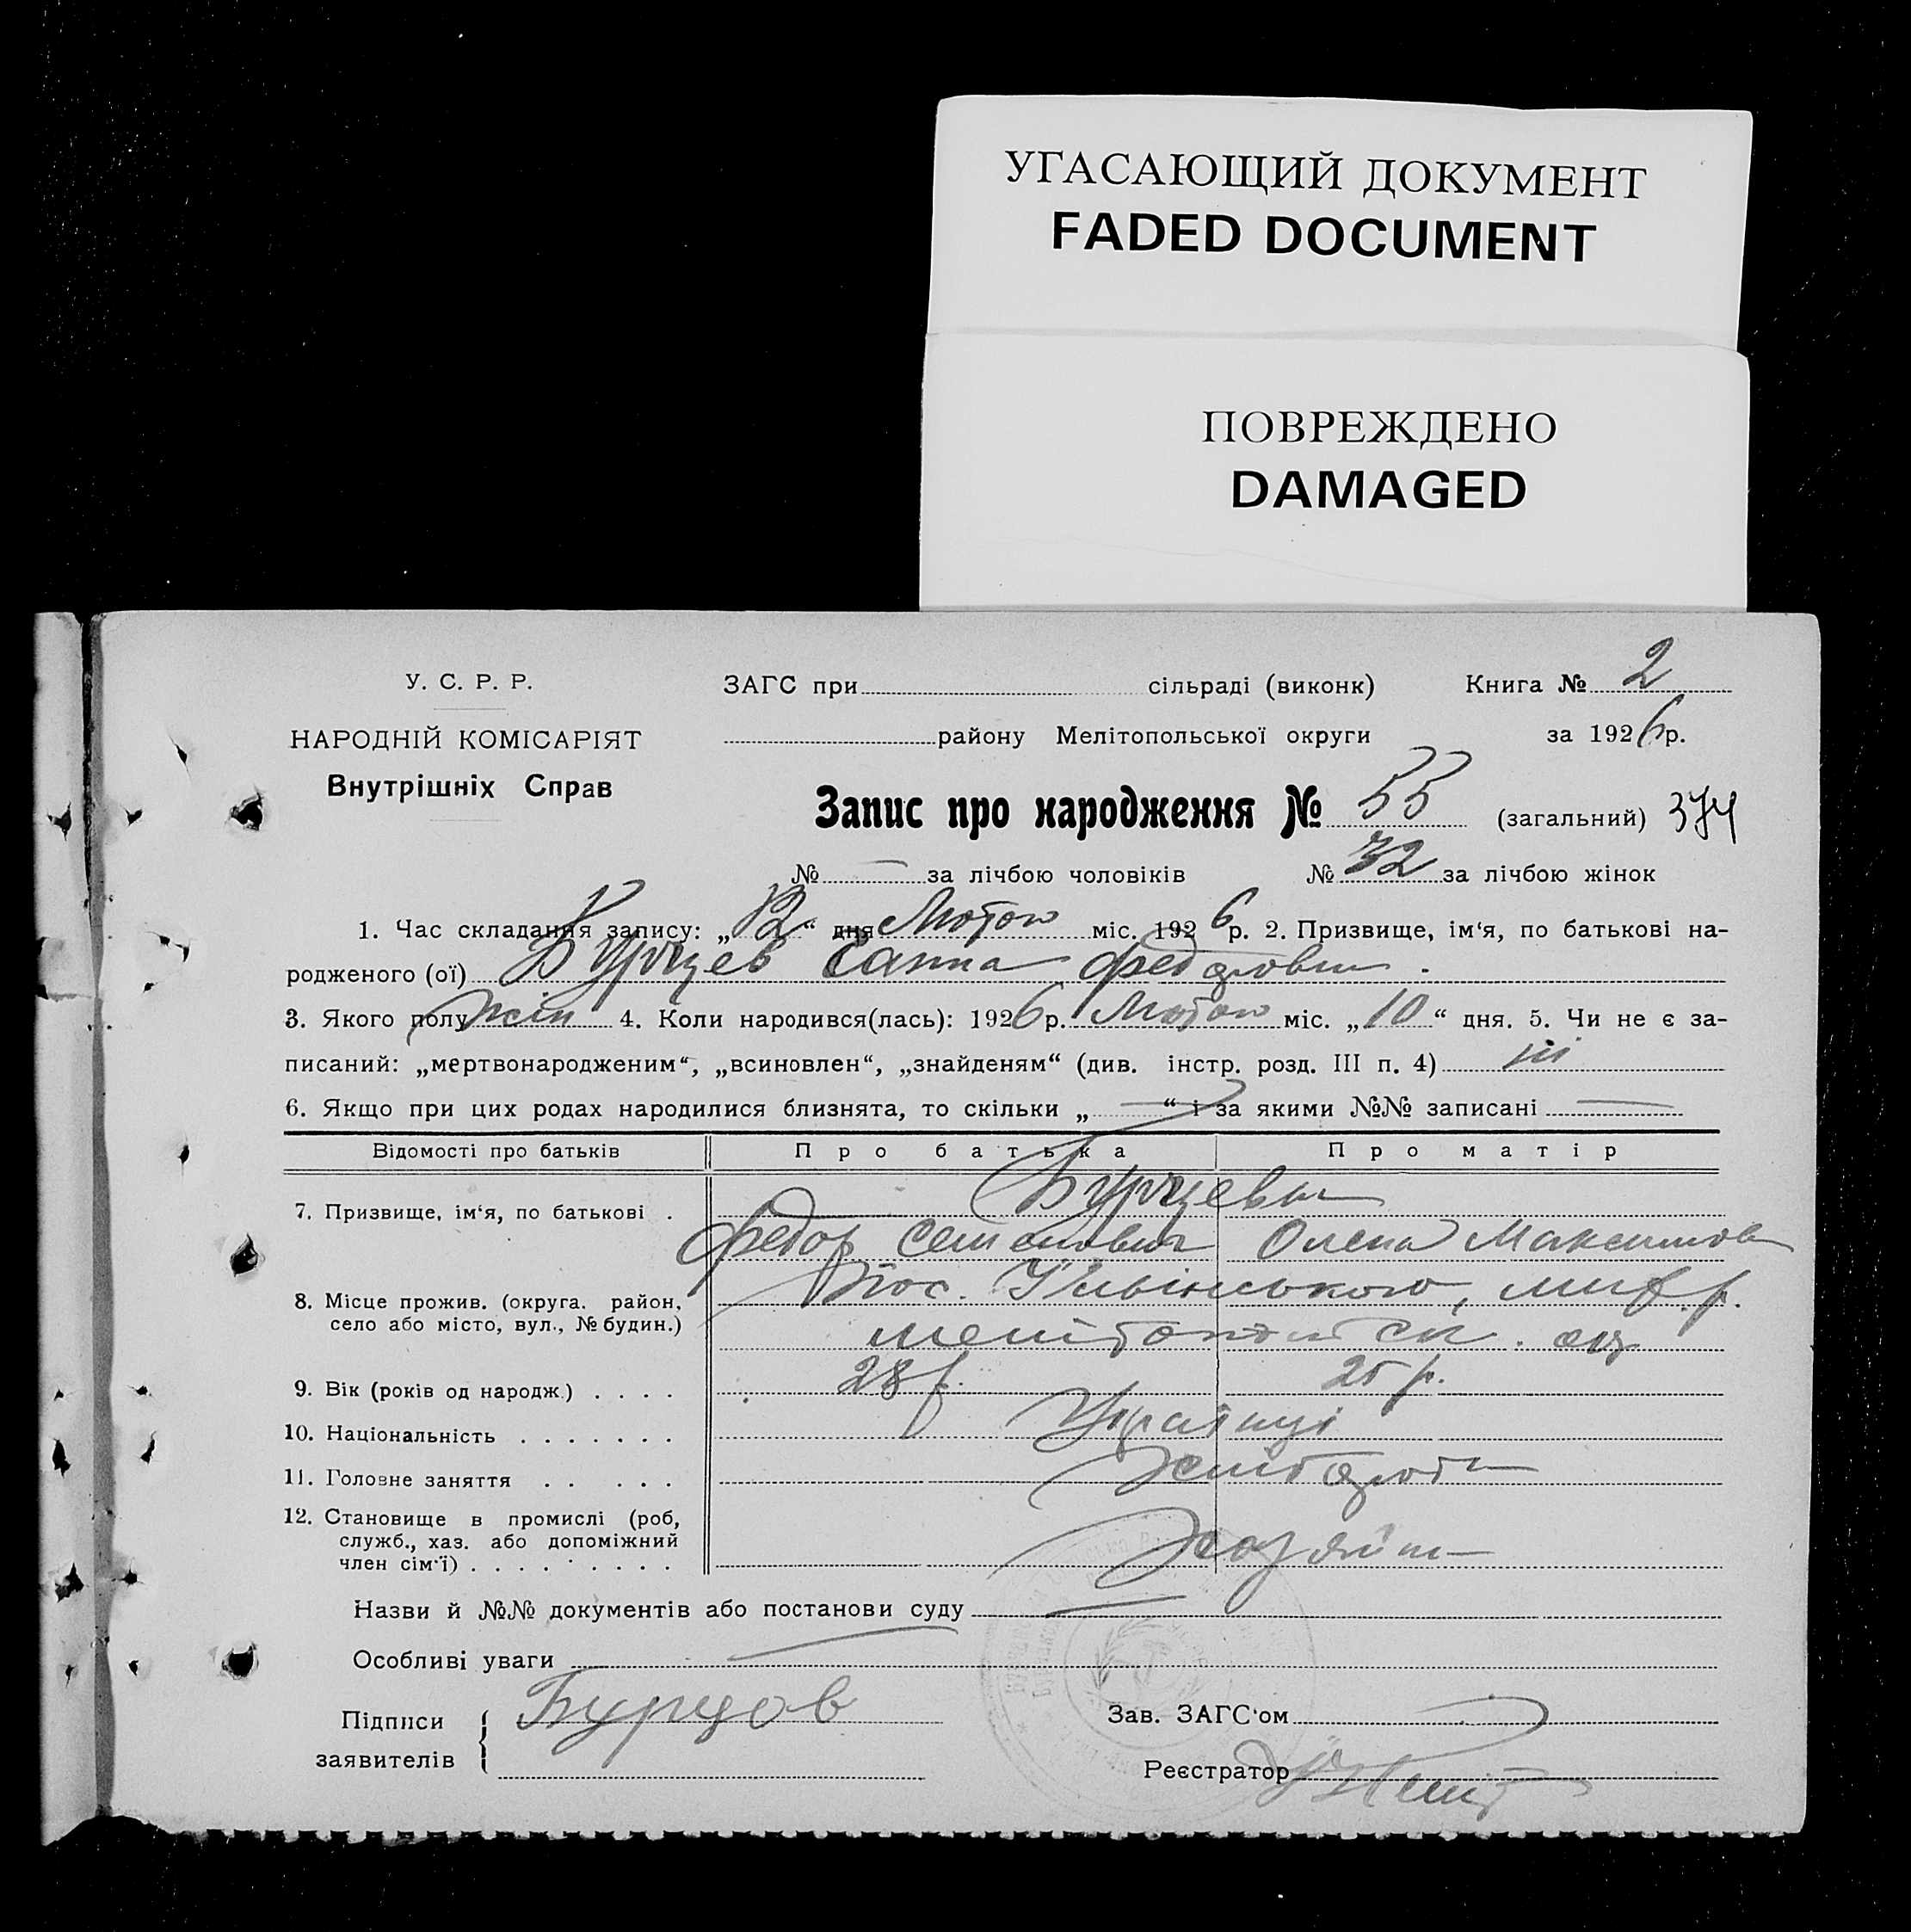 УГАСАЮЩИЙ ДОКУМЕНТ
FADED DOCUMENT
ПОВРЕЖДЕНО
DAMAGED
У. С. Р. Р.
НАРОДНІЙ КОМІСАРІЯТ
Внутрішніх Справ
ЗАГС при сільраді (виконк) Книга № 2
району Мелітопольської округи за 1926 р.
Запис про народження № 55 (загальний) 374
№ — за лічбою чоловіків № 32 за лічбою жінок
1. Час складання запису: „12“ дня Лютого міс. 1926 р. 2. Призвище, ім‘я, по батькові на-
родженого (ої) Бурцев Ганна Федоровна.
3. Якого полу жін 4. Коли народився(лась): 1926 р. Лютого міс. „10“ дня. 5. Чи не є за-
писаний: „мертвонародженим“, „всиновлен“, „знайденям“ (див. інстр. розд. III п. 4) ні
6. Якщо при цих родах народилися близнята, то скільки „—“ і за якими №№ записані —
Відомості про батьків Про батька Про матір
7. Призвище, ім‘я, по батькові . Бурцевы
Федор Семенович Олена Максимов
8. Місце прожив. (округа. район,
село або місто, вул., № будин.)
Пос.
9. Вік (років од народж.) . . . . 28 р. 25 р.
10. Національність . . . . . . . Українці
11. Головне заняття . . . . . Хлібороби
12. Становище в промислі (роб,
служб., хаз. або допоміжний
член сім‘ї) . . . . . . . . Хозяїн
Назви й №№ документів або постанови суду —
Особливі уваги —
Підписи
заявителів
Бурцов
Зав. ЗАГС‘ом
Реєстратор